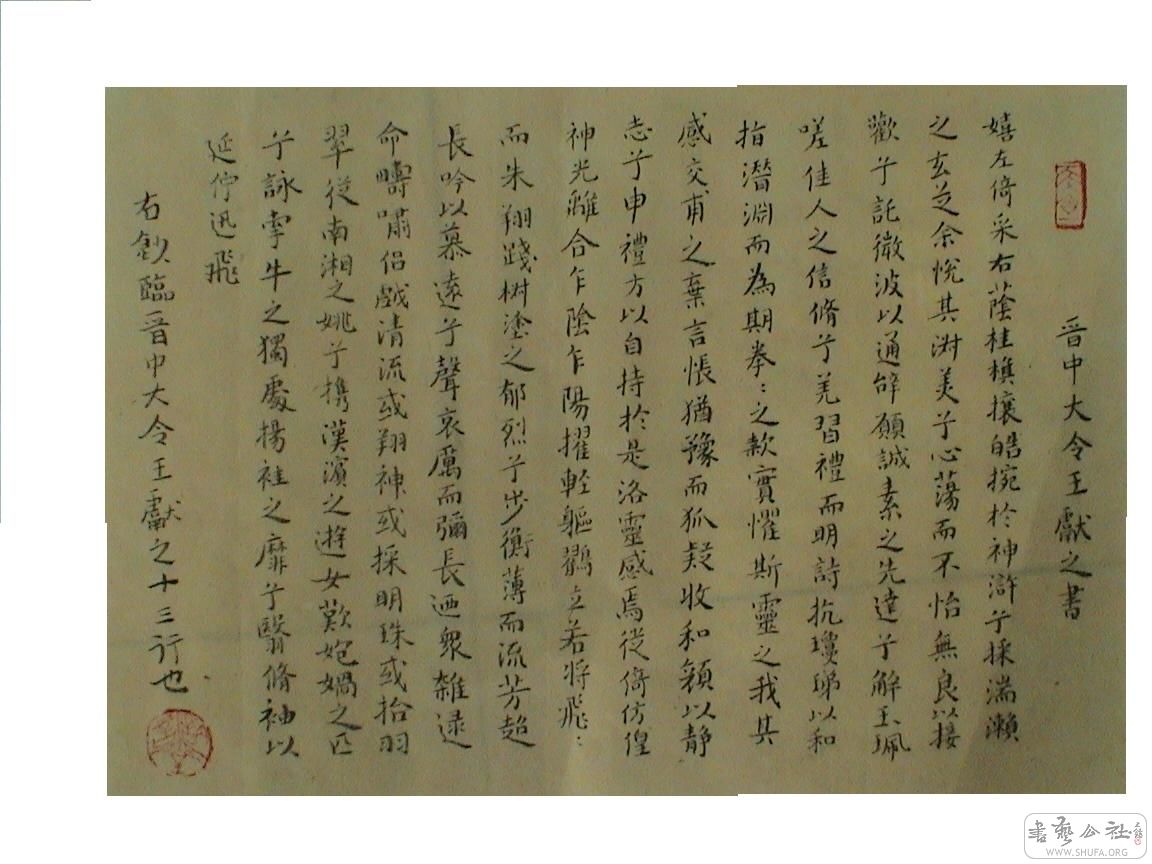 晉中大令王獻之書
嬉左倚采右蔭桂旗攘皓捥於神滸兮採湍瀨
之玄芝余悅其淑美兮心蕩而不怡無良以接
歡兮託微波以通辭願誠素之先達兮解玉珮
嗟佳人之信脩兮羌習禮而明詩抗瓊珶以和
指潛淵而為期拳:之款實懼斯靈之我其
感交甫之棄言悵猶豫而狐疑收和顏以靜
志兮申禮方以自持於是洛靈感焉徙倚仿偟
神光離合乍陰乍陽擢輕軀鸖立若將飛:
而未翔踐椒塗之郁烈兮步衡薄而流芳超
長吟以慕遠兮聲哀厲而彌長迺衆雜逯
命疇嘯侶戲清流或翔神或採明珠或拾羽
翠從南湘之姚兮攜漢濱之遊女歎媿媧之匹
兮詠牽牛之獨處揚袿之靡兮翳脩袖以
延佇迅飛
右敛臨晉中大令王獻之十三行也
書藝公社
WWW.SHUFA.ORG